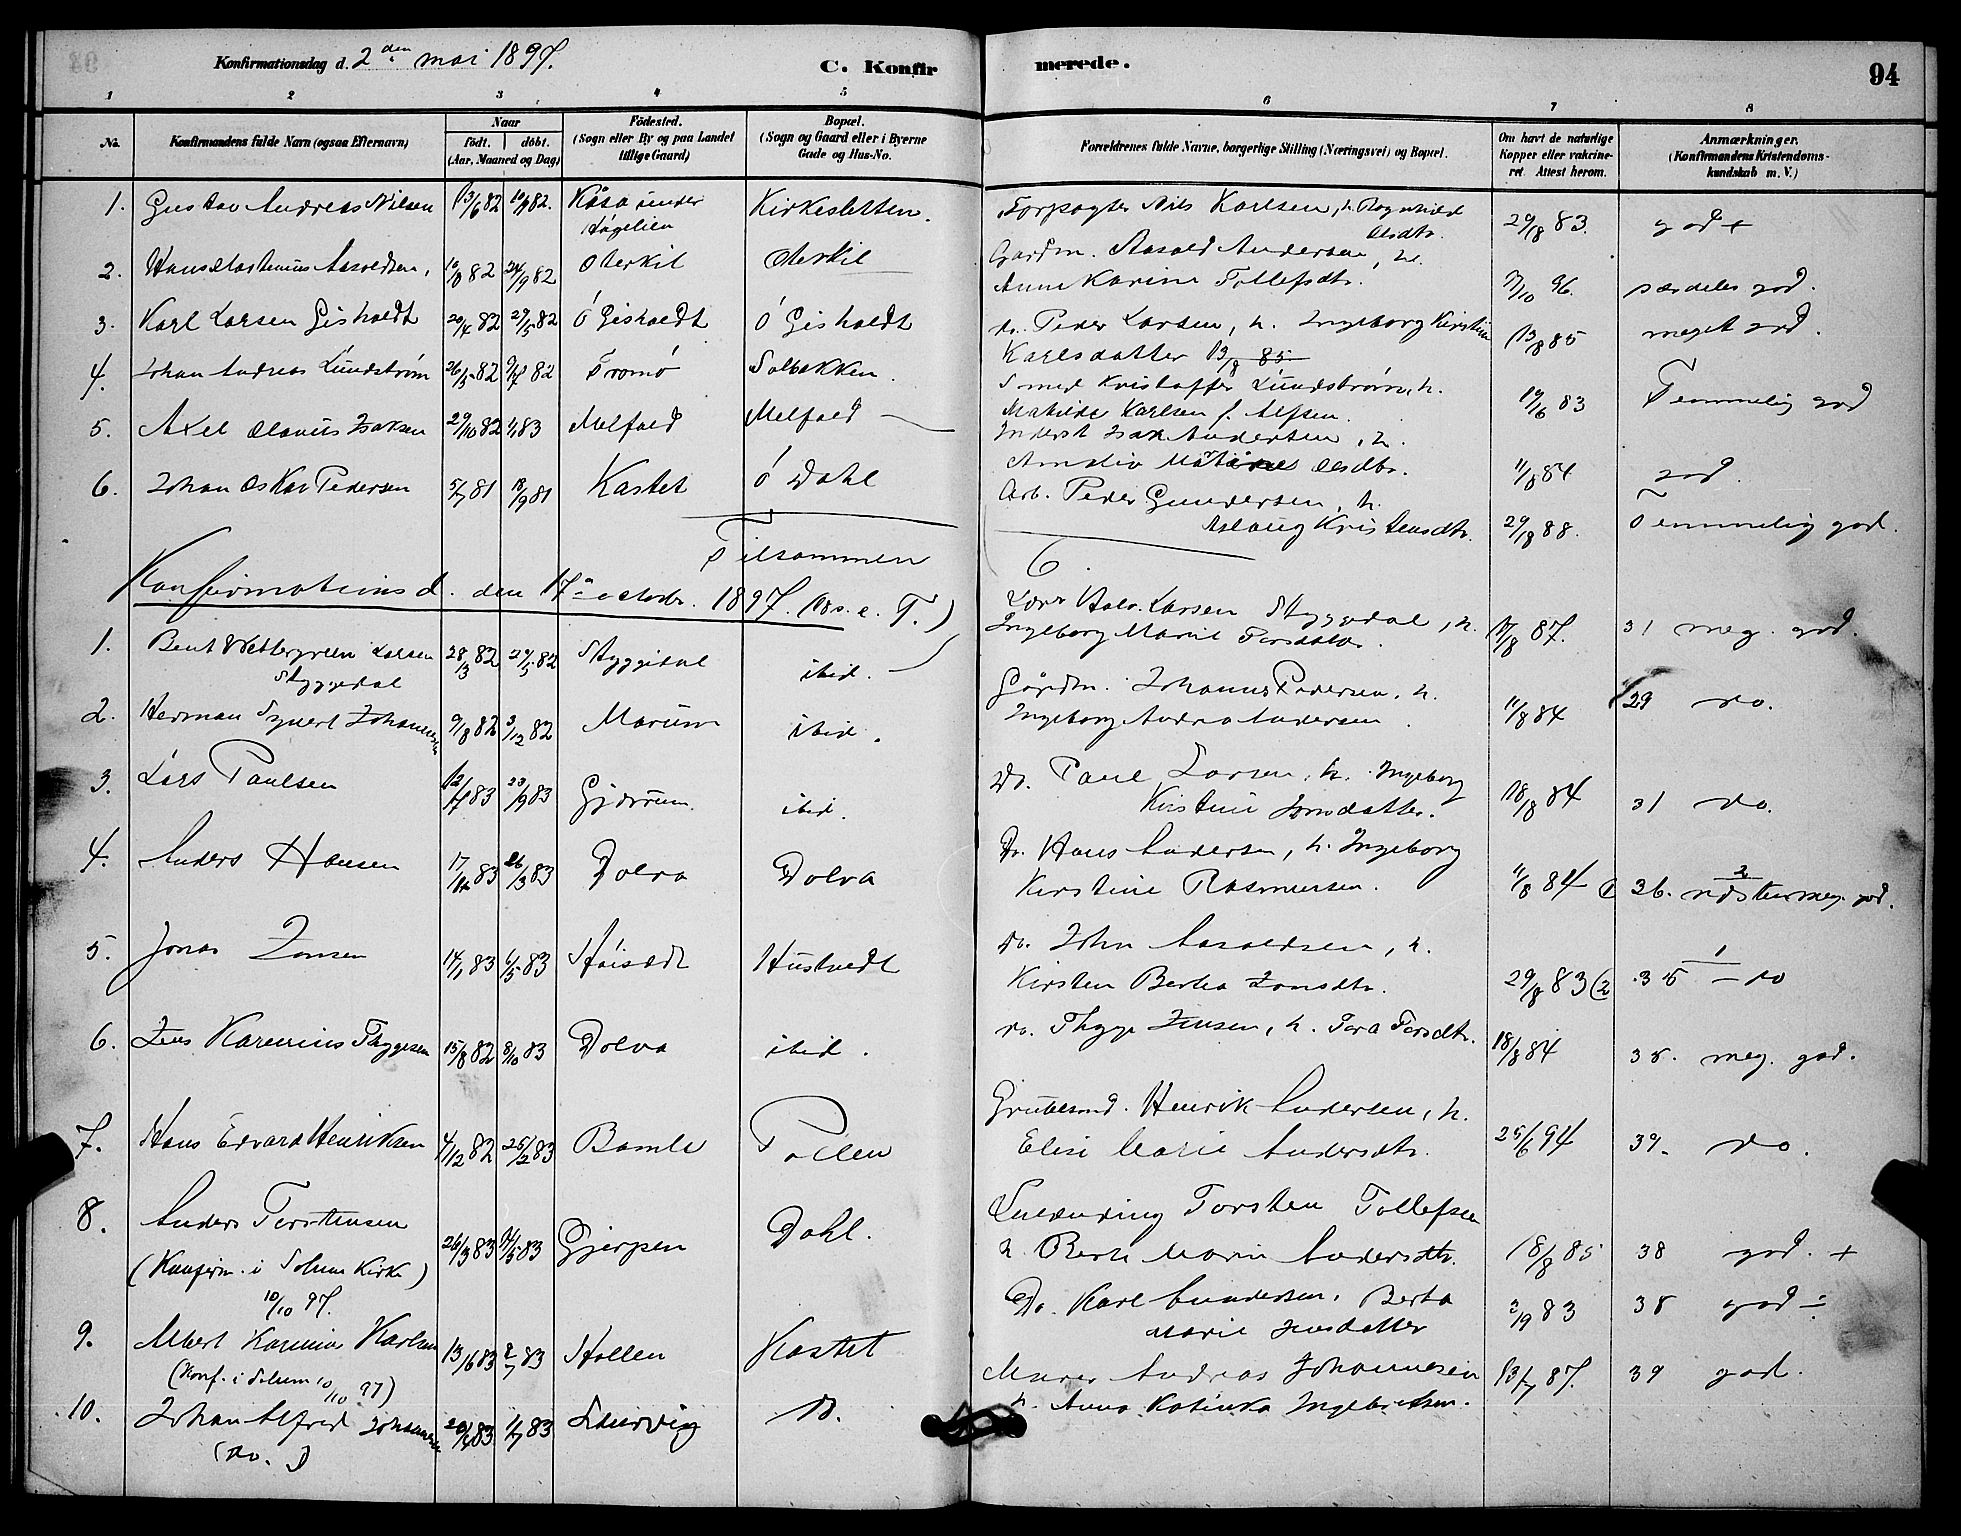 Konfirmationsdag d. 2den mai 1897.
C. Konfirmerede.
94
1 2 3 4 5 6 7 8
No.
Konfirmandens fulde Navn (ogsaa Efternavn)
Naar
födt. döbt.
(Aar, Maaned og Dag)
Födested.
(Sogn eller By og paa Landet
tillige Gaard)
Bopæl.
(Sogn og Gaard eller i Byerne
Gade og Hus-No.
Forældrenes fulde Navne, borgerlige Stilling (Næringsvei) og Bopæl.
Om havt de naturlige
Kopper eller vakcine-
ret Attest herom.
Anmærkninger.
(Konfirmandens Kristendoms-
kundskab m. V.)
1. Gustav Andreas Nilsen 13/6 82 Kåsa under Kirkesletten.
Forpagter Nils Karlsen, h. Ragnhild
Olsdtr. 29/8 83. god +
2. Hans Mastinius Aasoldsen, 24/9 82 Østerkil Østerkil
Gardm. Aasold Andersen, h.
Anne Karine Tollefsdtr. særdeles god.
3. Karl Larsen Gisholdt 20/4 82 29/5 82 Ö Gisholdt Ö Gisholdt
do. Peder Larsen, h. Ingeborg Kirstine
Karlsdatter 13/8 85 13/8 85 meget god.
4. Johan Andreas Lundstrøm 26/5 82 Tromö Solbakken.
Smed Kristoffer Lundstrøm, h.
Mathilde Karlsen f. Alfsen. 19/6 83 Temmelig god
5. Axel Olavus Isaksen 29/10 82 Melfald Melfald
Inderst Isak Andersen, h.
Olsdtr. 11/8 84 god.
6. Johan Oskar Pedersen 5/7 81 18/9 81 Kastet Ö Dahl
Arb. Peder Gundersen, h.
Aslaug Kristensdtr. 29/8 88. Temmelig god.
Tilsammen 6.
Konfirmations d. den 17de octobr. 1897. (18 s. e. T.)
1. Bent Wettergreen Larsen
Styggedal 28/3 82 29/5 82 Styggedal ibid.
Halv. Larsen Styggedal, h.
Ingeborg Marie Torsdatter 17/8 87. 31 meg. god.
2. Herman Syvert Johannesen 9/8 82 3/12 82 Marum ibid.
Gårdm. Johannes Pedersen, h.
Ingeborg Andrea Andersen. 11/8 84 29 do.
3. Lars Paulsen 23/9 83 Gjærum. ibid.
Do. Paul Larsen, h. Ingeborg
Kirstine Jonsdatter. 18/8 84 31 do.
4. Anders Hansen 26/3 83 Dolva Dolva
Do. Hans Andersen, h. Ingeborg
Kirstine Rasmussen. 11/8 84 36. næsten meg. god.
5. Jonas Jonsen 14/1 83 6/5 83 Hustvedt
do. John Aasoldsen, h.
Kirsten Berta Jonsdtr. 29/8 83 (2 35 do
6. Jens Karinius Thygesen 15/8 82 8/10 83 Dolva ibid.
do. Thyge Jensen, h. Tora Torsdtr. 18/8 84 38. meg. god.
7. Hans Edvard Henriksen 4/12 82 25/2 83 Bamle Pollen
Grubesmd. Henrik Andersen, h.
Elise Marie Andersdtr. 25/6 94 39. do.
8. Anders Torstensen
(Konfirm. i Solum Kirke)
10/10 97. 26/3 83 Gjerpen Dahl.
Torsten Tollefsen
h. Berte Marie Andersdtr. 18/8 85 38 god. +
9. Albert Karinius Karlsen
(Konf. i Solum 10/10 97) 13/6 83 83 Hollen Kastet
Do. Karl Gundersen, Berta
Marie Jensdatter 2/9 83 38 god ÷
10. Johan Alfred Johannesen
(do.) 83 83 do.
Murer Andreas Johannesen
h. Anna Katinka Ingebretsen. 13/7 87. 39 god.